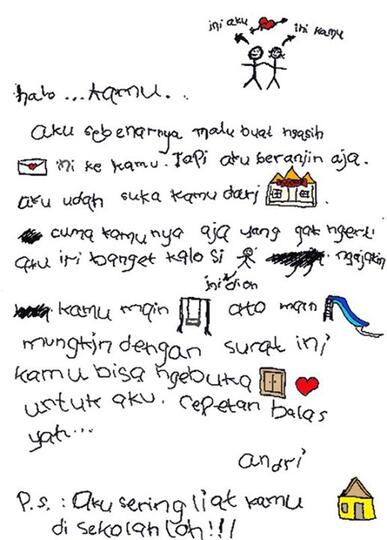 ini aku ini kamu
halo ... kamu . .
aku sebenarnya malu buat ngasih
ini ke kamu. Tapi aku beranjin aja.
aku udah suka kamu dari .
cuma kamunya aja yang gak ngerti
aku iri banget kalo si ngajakin
ini dion
kamu main ato main
mungkin dengan surat ini
kamu bisa ngebuka
untuk aku. cepetan balas
yah...
andri
P.s. : Aku sering liat kamu
di sekolah loh!!!